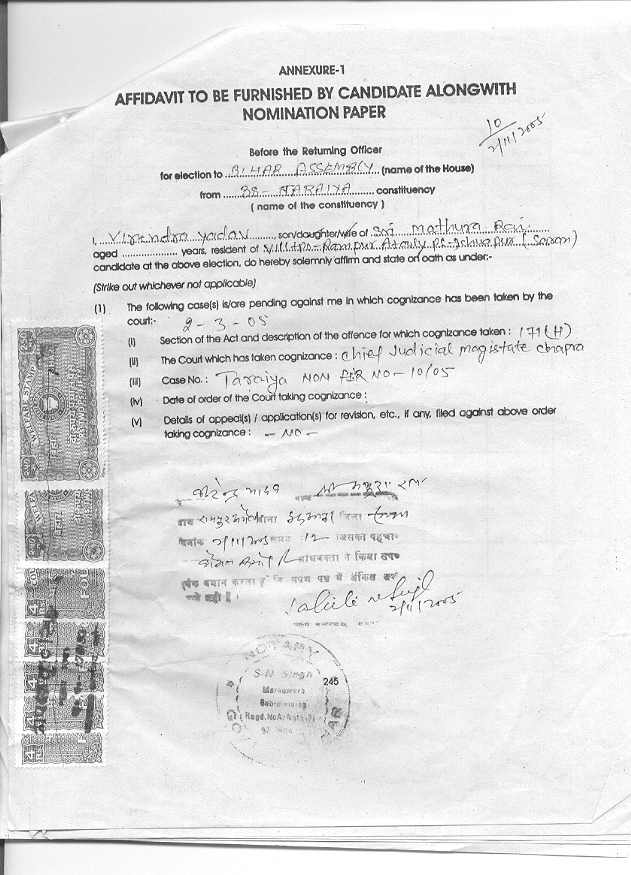 ANNEXURE-1
AFFIDAVIT TO BE FURNISHED BY CANDIDATE ALONGWITH
NOMINATION PAPER
10
2/11/2005
Before the Returning Officer
for election to BIHAR ASSEMBLY (name of the House)
from 38- TARAIYA constituency
( name of the constituency )
I, Virendra Yadav son/daughter/wife of Sri Mathura Rai
aged ........ years, resident of Vill+po- Rampur Atauly PS- Ishuapur (Saran)
candidate at the above election, do hereby solemnly affirm and state on oath as under:-
(Strike out whichever not applicable)
(1) The following case(s) is/are pending against me in which cognizance has been taken by the
court:- 2-3-05
(i) Section of the Act and description of the offence for which cognizance taken : 171(H)
(ii) The Court which has taken cognizance : Chief Judicial magistate chapra
(iii) Case No. : Taraiya NON FIR NO- 10/05
(iv) Date of order of the Court taking cognizance :
(v) Details of appeal(s) / application(s) for revision, etc., if any, filed against above order
taking cognizance : - NO -
वीरेन्द्र यादव
2/11/2005 12 जिसका पहचान
ने किया
बयान करता कि शपथ पत्र में अंकित
सही है।
2/11/2005
NOTARY
S.N. Singh
245